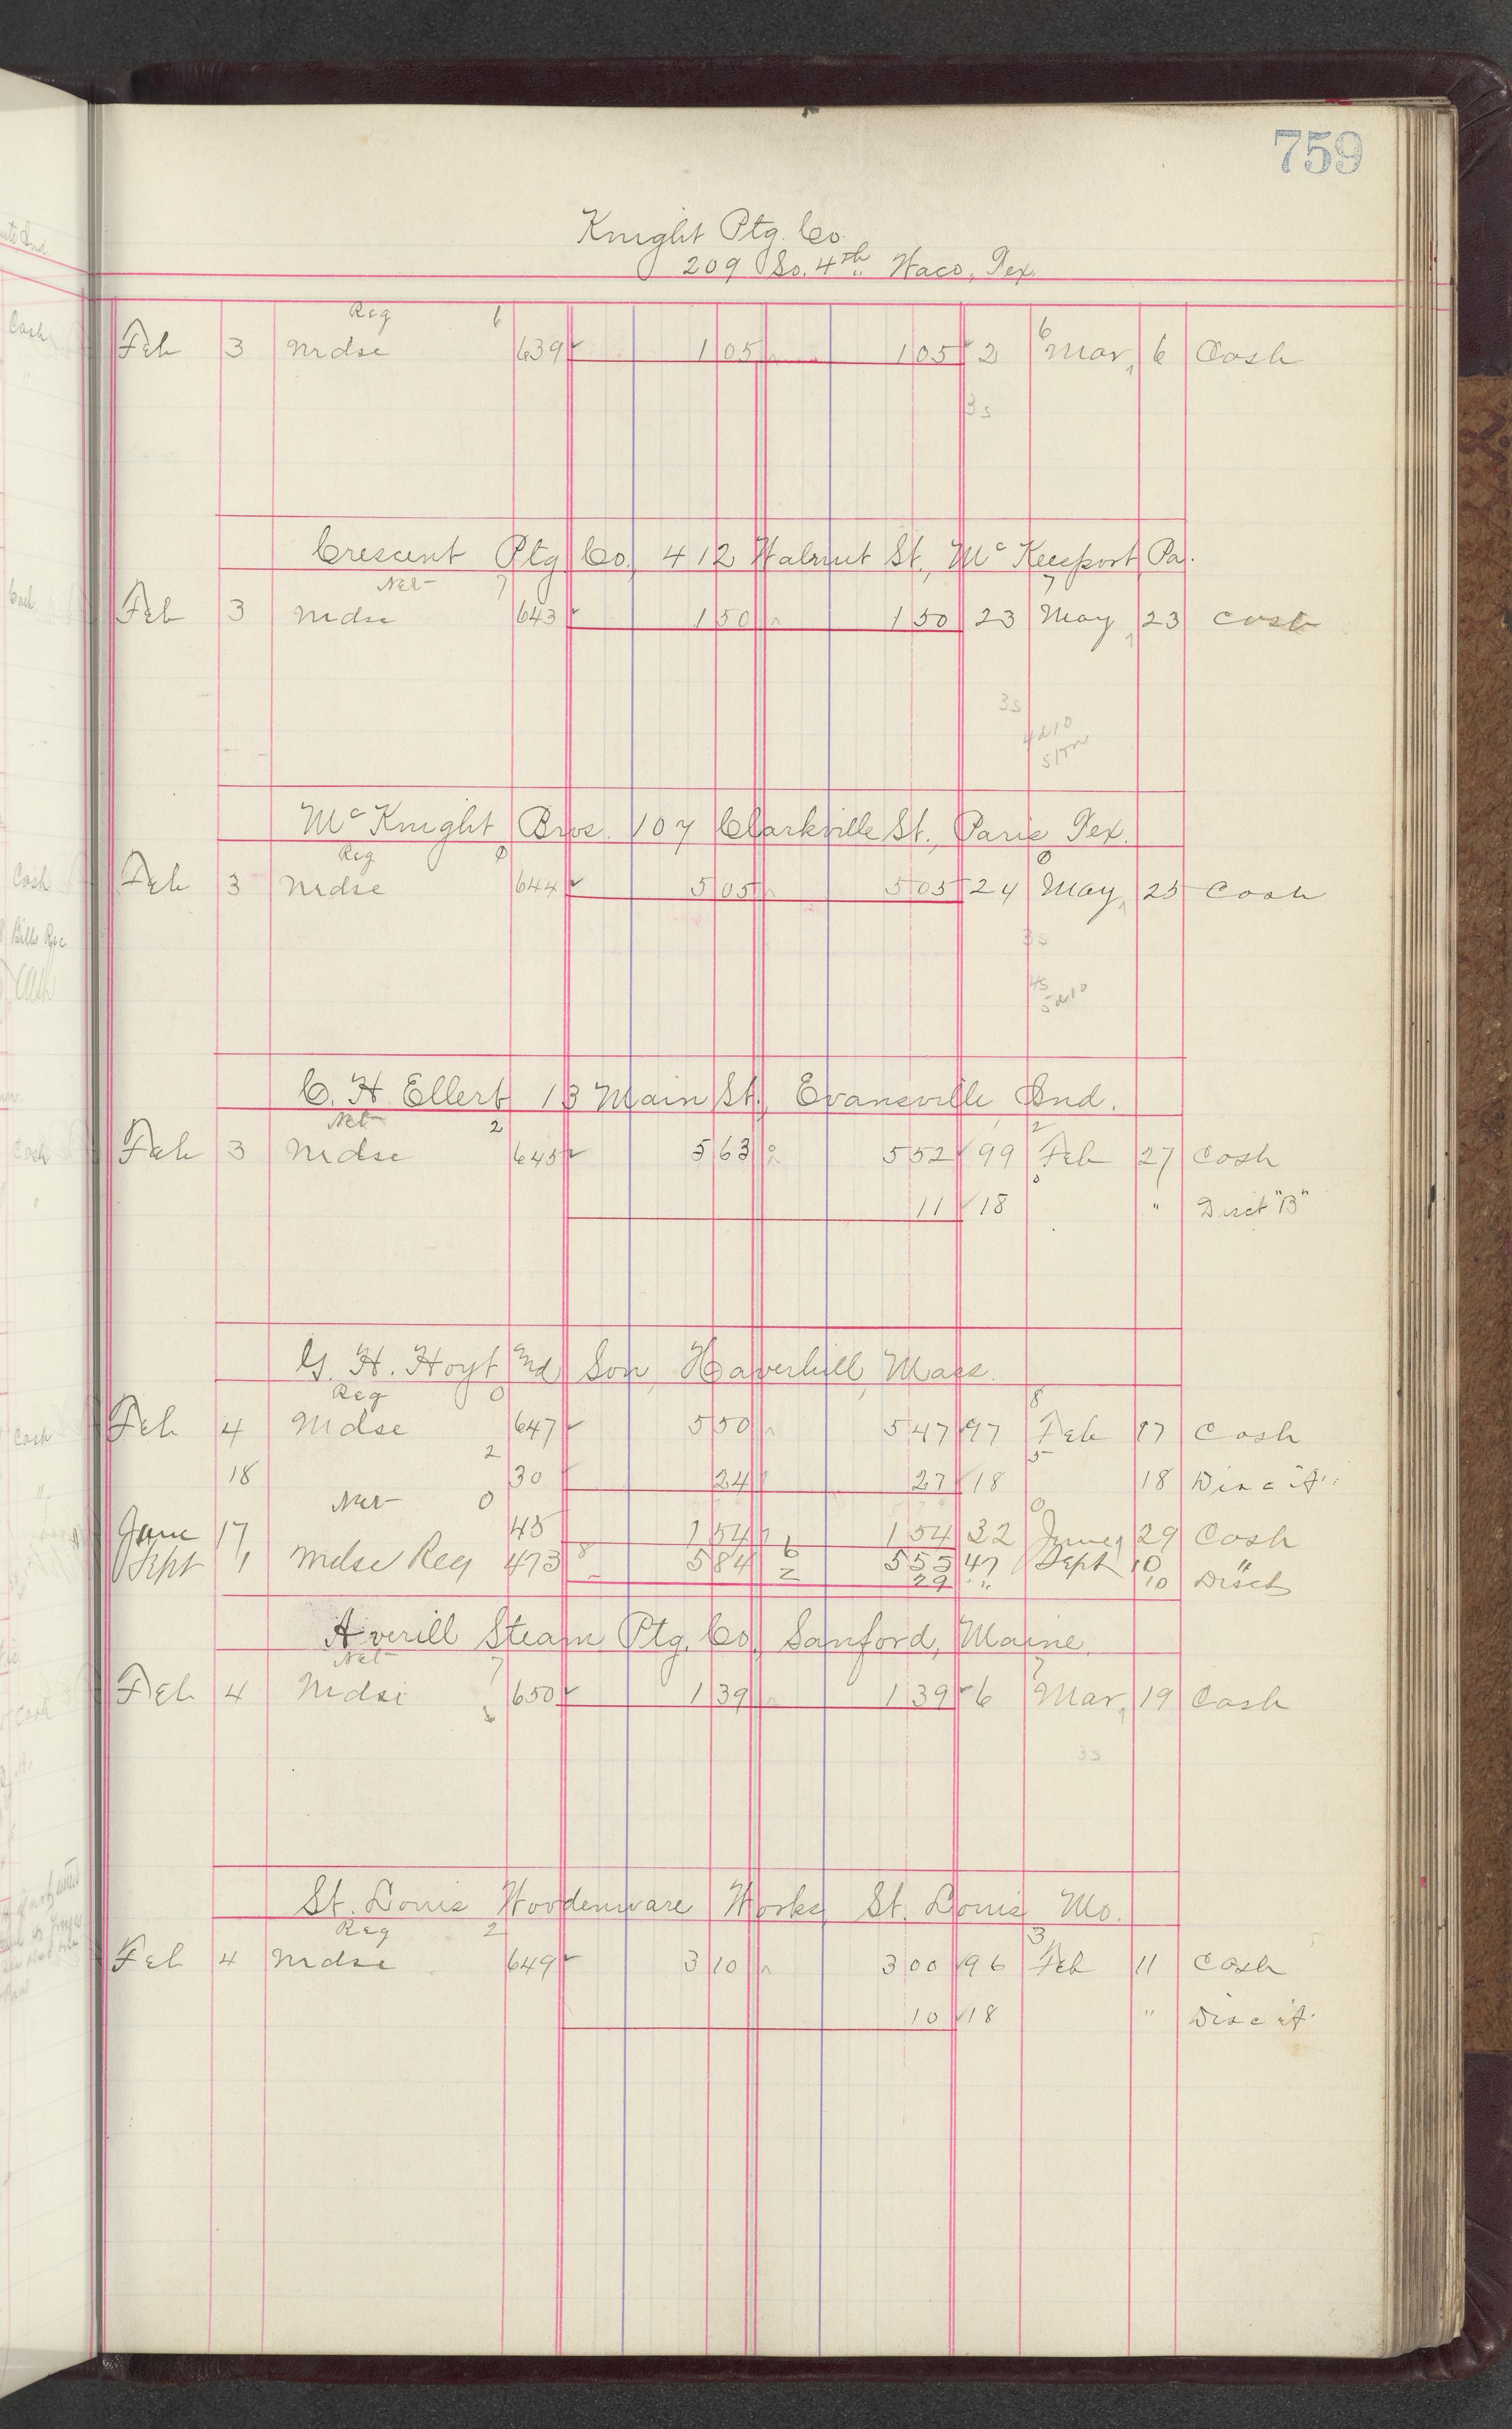 759
Knight Ptg. Co.
209 So. 4th Waco, Tex.
Reg 6 6
Feb 3 Mdse 639 1 05 1 05 2 Mar, 6 Cash
3s
Crescent Ptg Co. 412 Walnut St., Mc Keesport Pa.
Net 7 7
Feb 3 Mdse 643 1 50 1 50 23 May 23 Cash
3s
4d10
Mc Knight Bros. 107 Clarkville St., Paris Tex.
Reg 0 0
Feb 3 Mdse 644 5 05 5 05 24 May, 25 Cash
3s
4s
5d10
C. H. Ellert 13 Main St., Evansville, Ind.
Net 2 2
Feb 3 Mdse 645 5 63 5 52 99 Feb 27 Cash
11 18 " Disct "B"
G. H. Hoyt and Son, Haverhill, Mass.
Reg 0 8
Feb 4 Mdse 647 5 50 5 47 97 Feb 17 Cash
18 2 30 24 27 18 5 18 Disc "A"
Net 0 0
June 17 45 1 54 1 54 32 June, 29 Cash
Sept 1 Mdse Reg 473 5 84 6 5 55 47 Sept 10 "
2 29 " 10 Disct
Averill Steam Ptg. Co., Sanford, Maine.
Net 7 7
Feb 4 Mdse 650 1 39 1 39 6 Mar, 19 Cash
3s
St. Louis Woodenware Works, St. Louis, Mo.
Reg 2 3
Feb 4 Mdse 649 3 10 3 00 96 Feb 11 Cash
10 18 " Disc "A"
Cash
Cash
Cash
Bills Rec
Cash
Cash
Cash
Cash